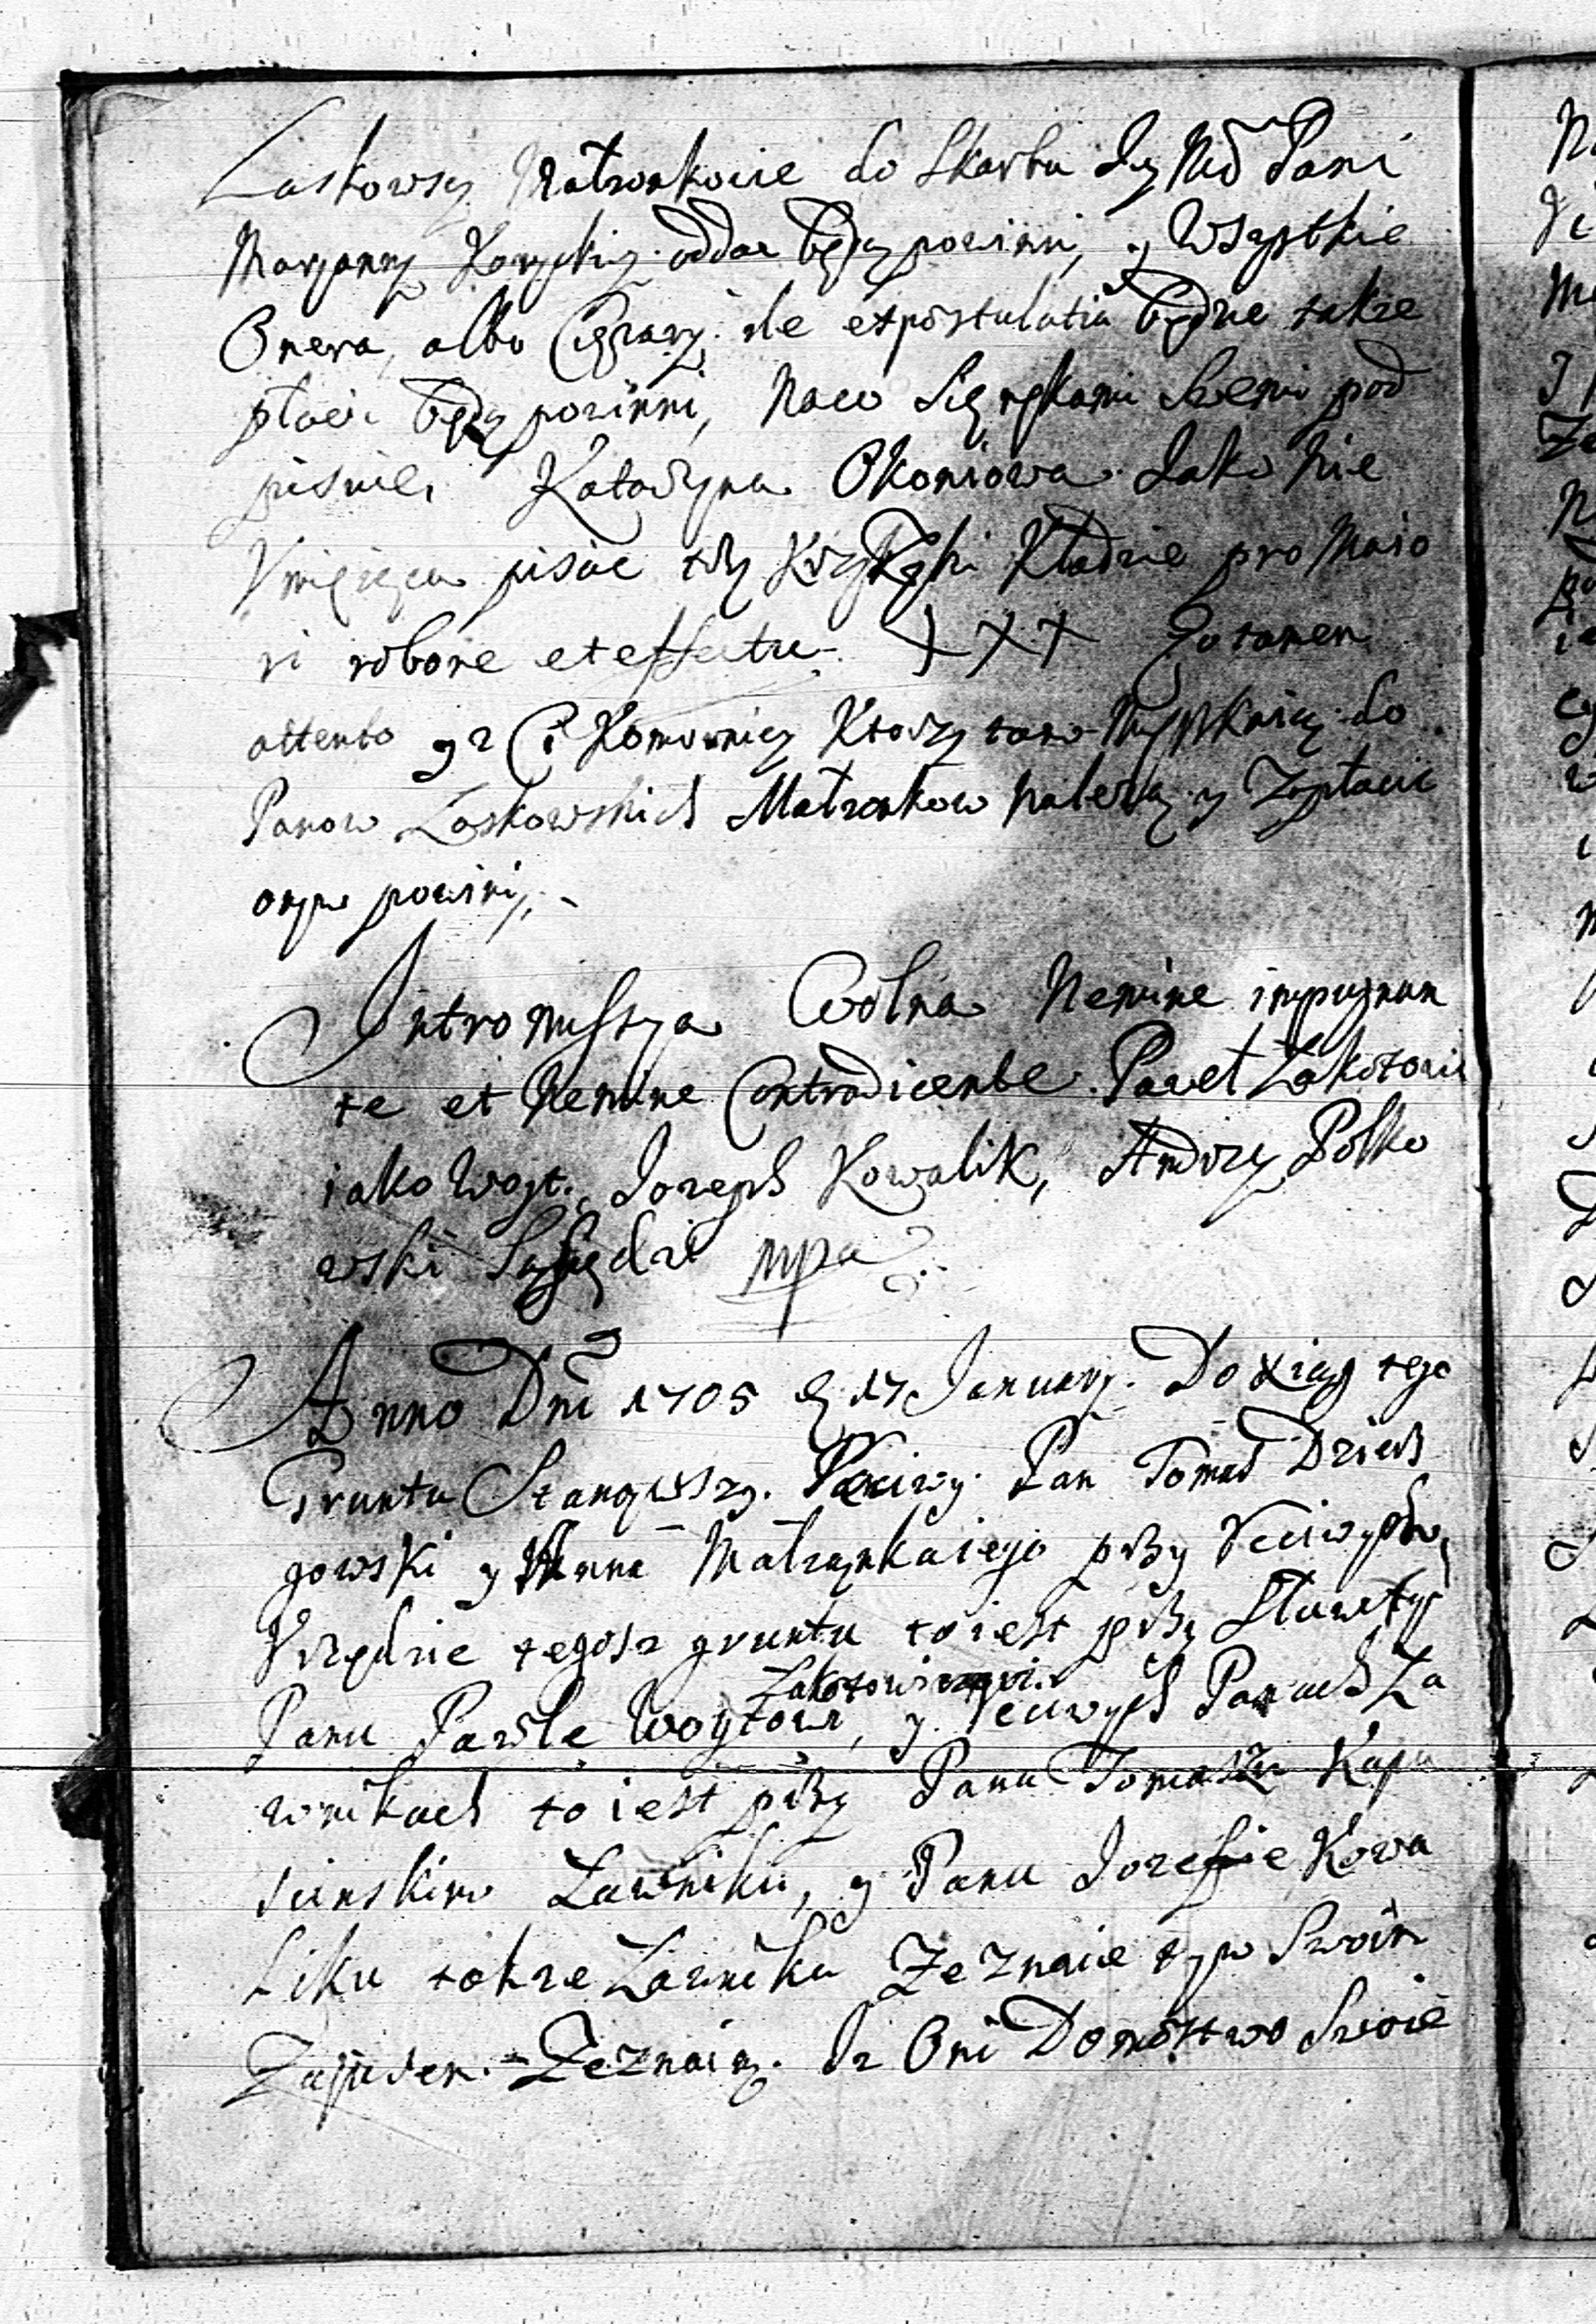 Laskowscy Małzonkowie do Skarbu Jey Mć Pani
Maryanny Koryckiey oddać będą powinni, y Wszystkie
Onera, albo Cięzary ile expostulatia będzie takze
płacic będą powinni, Naco Się rękami Swemi pod
pisuiei Katarzyna Okoniowa Jako Nie
Vmięięca pisac trzy Krzyzyki Kładzie pro Maio
ri robore et effectu XXX Ja tamen
attento yz Ci Komornicy Ktorzy tam Myszkaią do
Panow Laskowskich Małzonkow Nalezą y Zapłacic
onym powinni
Intromissya Wolna Nemine impugnan
te et Nemine Contradicente. Paweł Zakotowic
iako Woyt. Jozeph Kowalik, Andrzey Polko
wski Sąsiędzi mpa
Anno Dni 1705 d 17 January. Do Xiąg tego
Gruntu Stanąwszy. Vcciwy Pan Tomasz Dziech
gowski y Anna Małzonka iego przy Vcciwych
Vrzędzie tegosz gruntu to iest przy Sławetym
Zakotowiczowi
Panu Pawle Woytowi, y Vcciwych Panach Ła
wnikach to iest przy Panu Tomaszu Kapu
scinskim Ławniku, y Panu Jozefie Kowa
liku takze Ławniku Zeznaie tym Swoim
Zapisem. Zeznaią. Iz Oni Domostwo Swoie